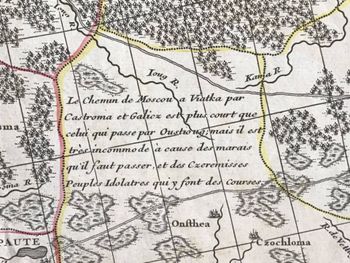 Ioug R.
Kama R.
Le Chemin de Moscou a Viatka par
Castroma et Galicz est plus court que
celui qui passe par Oustioug, mais il est
très incommode à cause des marais
qu'il faut passer, et des Czeremisses
Peuples Idolatres qui y font des Courses.
R.
Onsthea
Czochloma
PAUTE